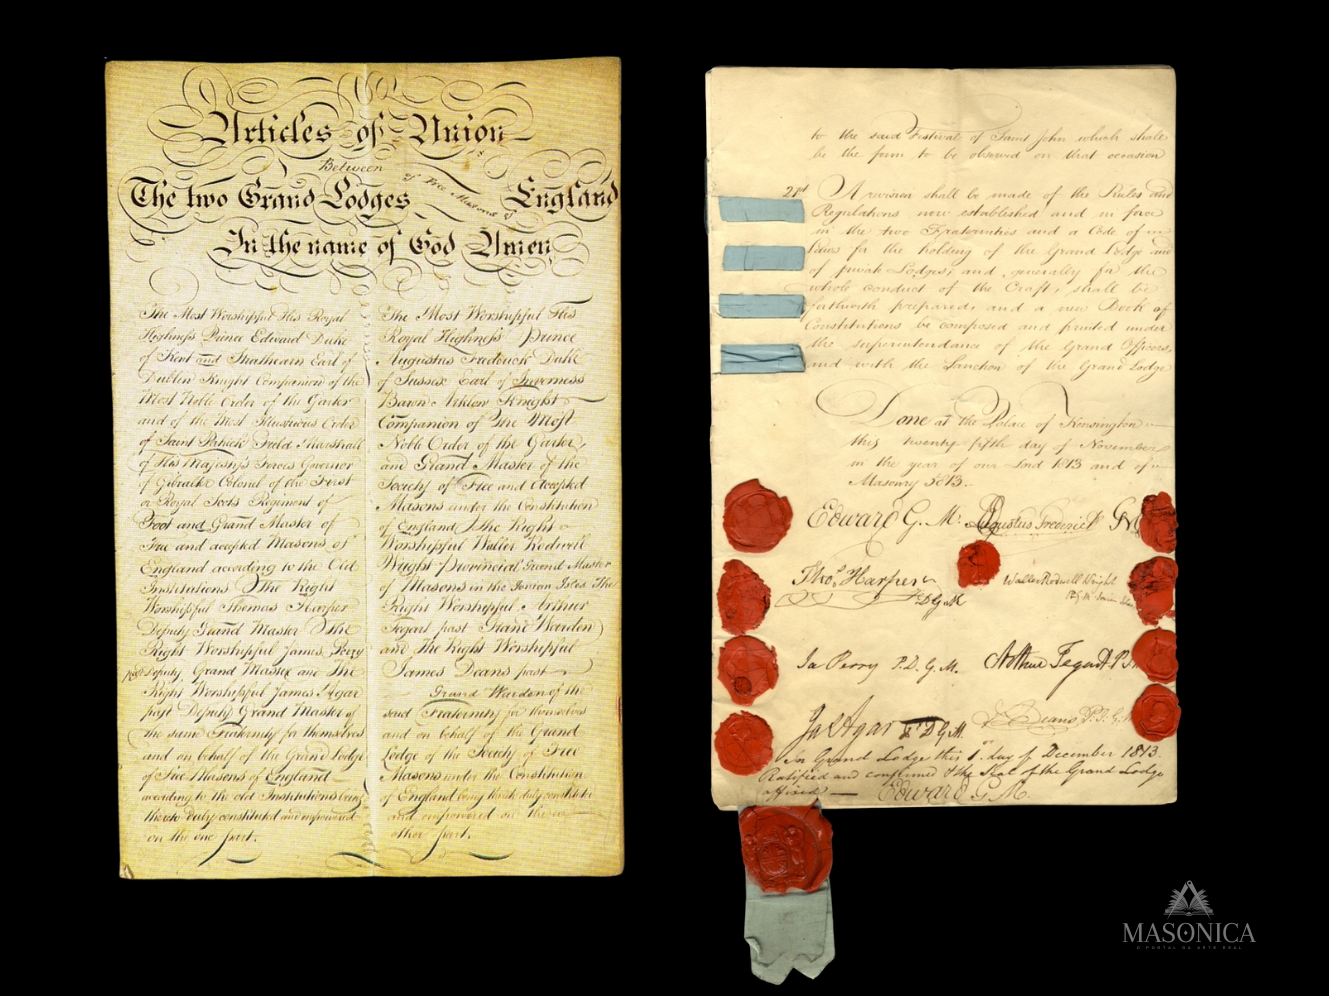 Articles of Union
Between
The two Grand Lodges of Free Masons of England
In the name of God Amen
The Most Worshipful His Royal
Highneſs Prince Edward Duke
of Kent and Strathearn Earl of
Dublin Knight Companion of the
Most Noble Order of the Garter
and of the Most Illustrious Order
of Saint Patrick Field Marshall
of His Majesty's Forces Governor
of Gibralter Colonel of the First
or Royal Scots Regiment of
Foot and Grand Master of
Free and accepted Masons of
England according to the Old
Institutions The Right
Worshipful Thomas Harper
Deputy Grand Master The
Right Worshipful James Perry
Past Deputy Grand Master and The
Right Worshipful James Agar
past Deputy Grand Master of
the same Fraternity for themselves
and on behalf of the Grand Lodge
of Free Masons of England
according to the old Institutions being
thereto duly constituted and empowered
on the one part.
The Most Worshipful His
Royal Highneſs Prince
Augustus Frederick Duke
of Sussex Earl of Inverness
Baron Arklow Knight
Companion of The Most
Noble Order of the Garter
and Grand Master of the
Society of Free and Accepted
Masons under the Constitution
of England The Right
Worshipful Waller Rodwell
Wright Provincial Grand Master
of Masons in the Ionian Isles The
Right Worshipful Arthur
Tegart past Grand Warden
and The Right Worshipful
James Deans past
Grand Warden of the
said Fraternity for themselves
and on behalf of the Grand
Lodge of the Society of Free
Masons under the Constitution
of England being thereto duly constituted
and empowered on the
other part.
to the said Festival of Saint John which shall
be the form to be observed on that occasion
21st A revision shall be made of the Rules and
Regulations now established and in force
in the two Fraternities and a Code of
for the holding of the Grand Lodge and
of private Lodges, and generally for the
whole conduct of the Craft, shall be
forthwith prepared, and a new Book of
Constitutions be composed and printed under
the superintendance of the Grand Officers,
and with the Sanction of the Grand Lodge
Done at the Palace of Kensington
this twenty fifth day of November
in the year of our Lord 1813 and of
Masonry 5813.
Edward G. M. Augustus Frederick GM
Thos. Harper DGM
Waller Rodwell Wright
Ja Perry P. D. G. M. Arthur Tegart
Jas Agar P D G M. Js Deans P. J. G. W.
In Grand Lodge this 1st day of December 1813
Ratified and confirmed & the Seal of the Grand Lodge
affixed — Edward G. M.
MASONICA
O PORTAL DA ARTE REAL